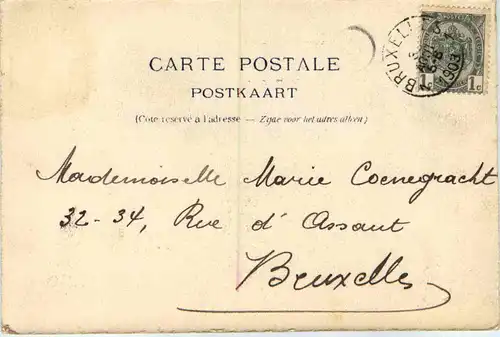 CARTE POSTALE
POSTKAART
(Côté réservé à l'adresse — Zijde voor het adres alleen)
BRUXELLES
1903
1c 1c
Mademoiselle Marie Coenegracht
32-34, Rue d'Assaut
Bruxelles